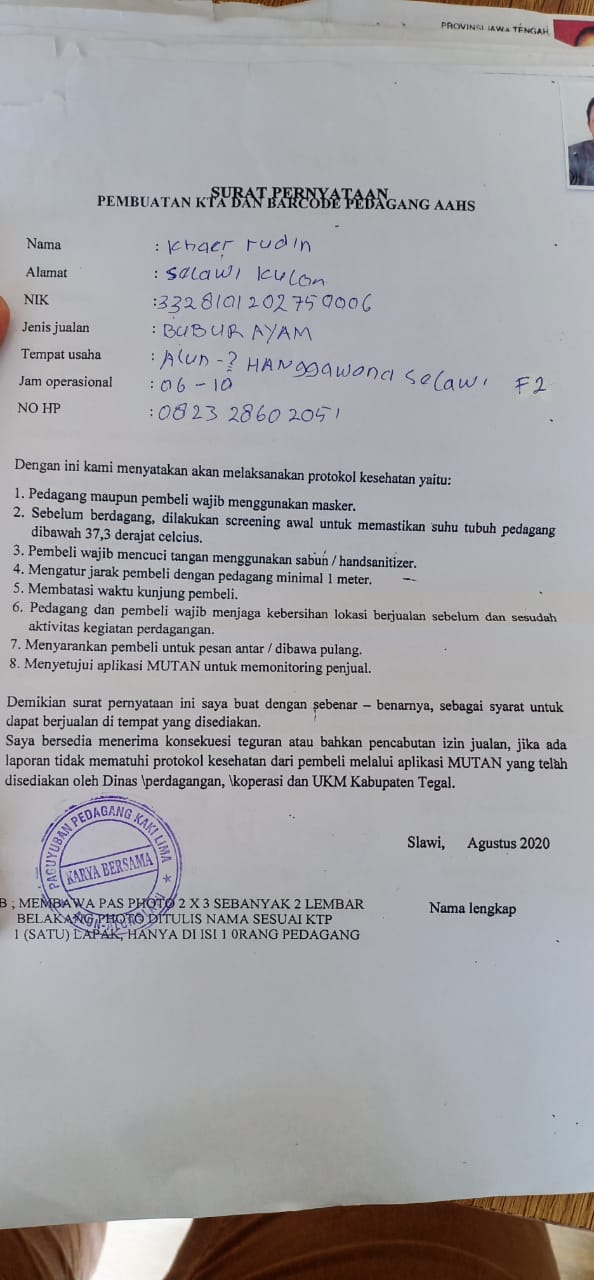 PROVINSI JAWA TENGAH
SURAT PERNYATAAN
PEMBUATAN KTA DAN BARCODE PEDAGANG AAHS
Nama : Khaer rudin
Alamat : Selawi Kulon
NIK :3328101202750006
Jenis jualan : BUBUR AYAM
Tempat usaha : Alun -2 HANggawana Selawi F2
Jam operasional : 06 - 10
NO HP : 0823 2860 2051
Dengan ini kami menyatakan akan melaksanakan protokol kesehatan yaitu:
1. Pedagang maupun pembeli wajib menggunakan masker.
2. Sebelum berdagang, dilakukan screening awal untuk memastikan suhu tubuh pedagang
dibawah 37,3 derajat celcius.
3. Pembeli wajib mencuci tangan menggunakan sabun / handsanitizer.
4. Mengatur jarak pembeli dengan pedagang minimal 1 meter.
5. Membatasi waktu kunjung pembeli.
6. Pedagang dan pembeli wajib menjaga kebersihan lokasi berjualan sebelum dan sesudah
aktivitas kegiatan perdagangan.
7. Menyarankan pembeli untuk pesan antar / dibawa pulang.
8. Menyetujui aplikasi MUTAN untuk memonitoring penjual.
Demikian surat pernyataan ini saya buat dengan sebenar – benarnya, sebagai syarat untuk
dapat berjualan di tempat yang disediakan.
Saya bersedia menerima konsekuesi teguran atau bahkan pencabutan izin jualan, jika ada
laporan tidak mematuhi protokol kesehatan dari pembeli melalui aplikasi MUTAN yang telah
disediakan oleh Dinas \perdagangan, \koperasi dan UKM Kabupaten Tegal.
Slawi, Agustus 2020
PAGUYUBAN PEDAGANG KAKI LIMA
KARYA BERSAMA
B ; MEMBAWA PAS PHOTO 2 X 3 SEBANYAK 2 LEMBAR
BELAKANG PHOTO DITULIS NAMA SESUAI KTP
1 (SATU) LAPAK, HANYA DI ISI 1 0RANG PEDAGANG
Nama lengkap